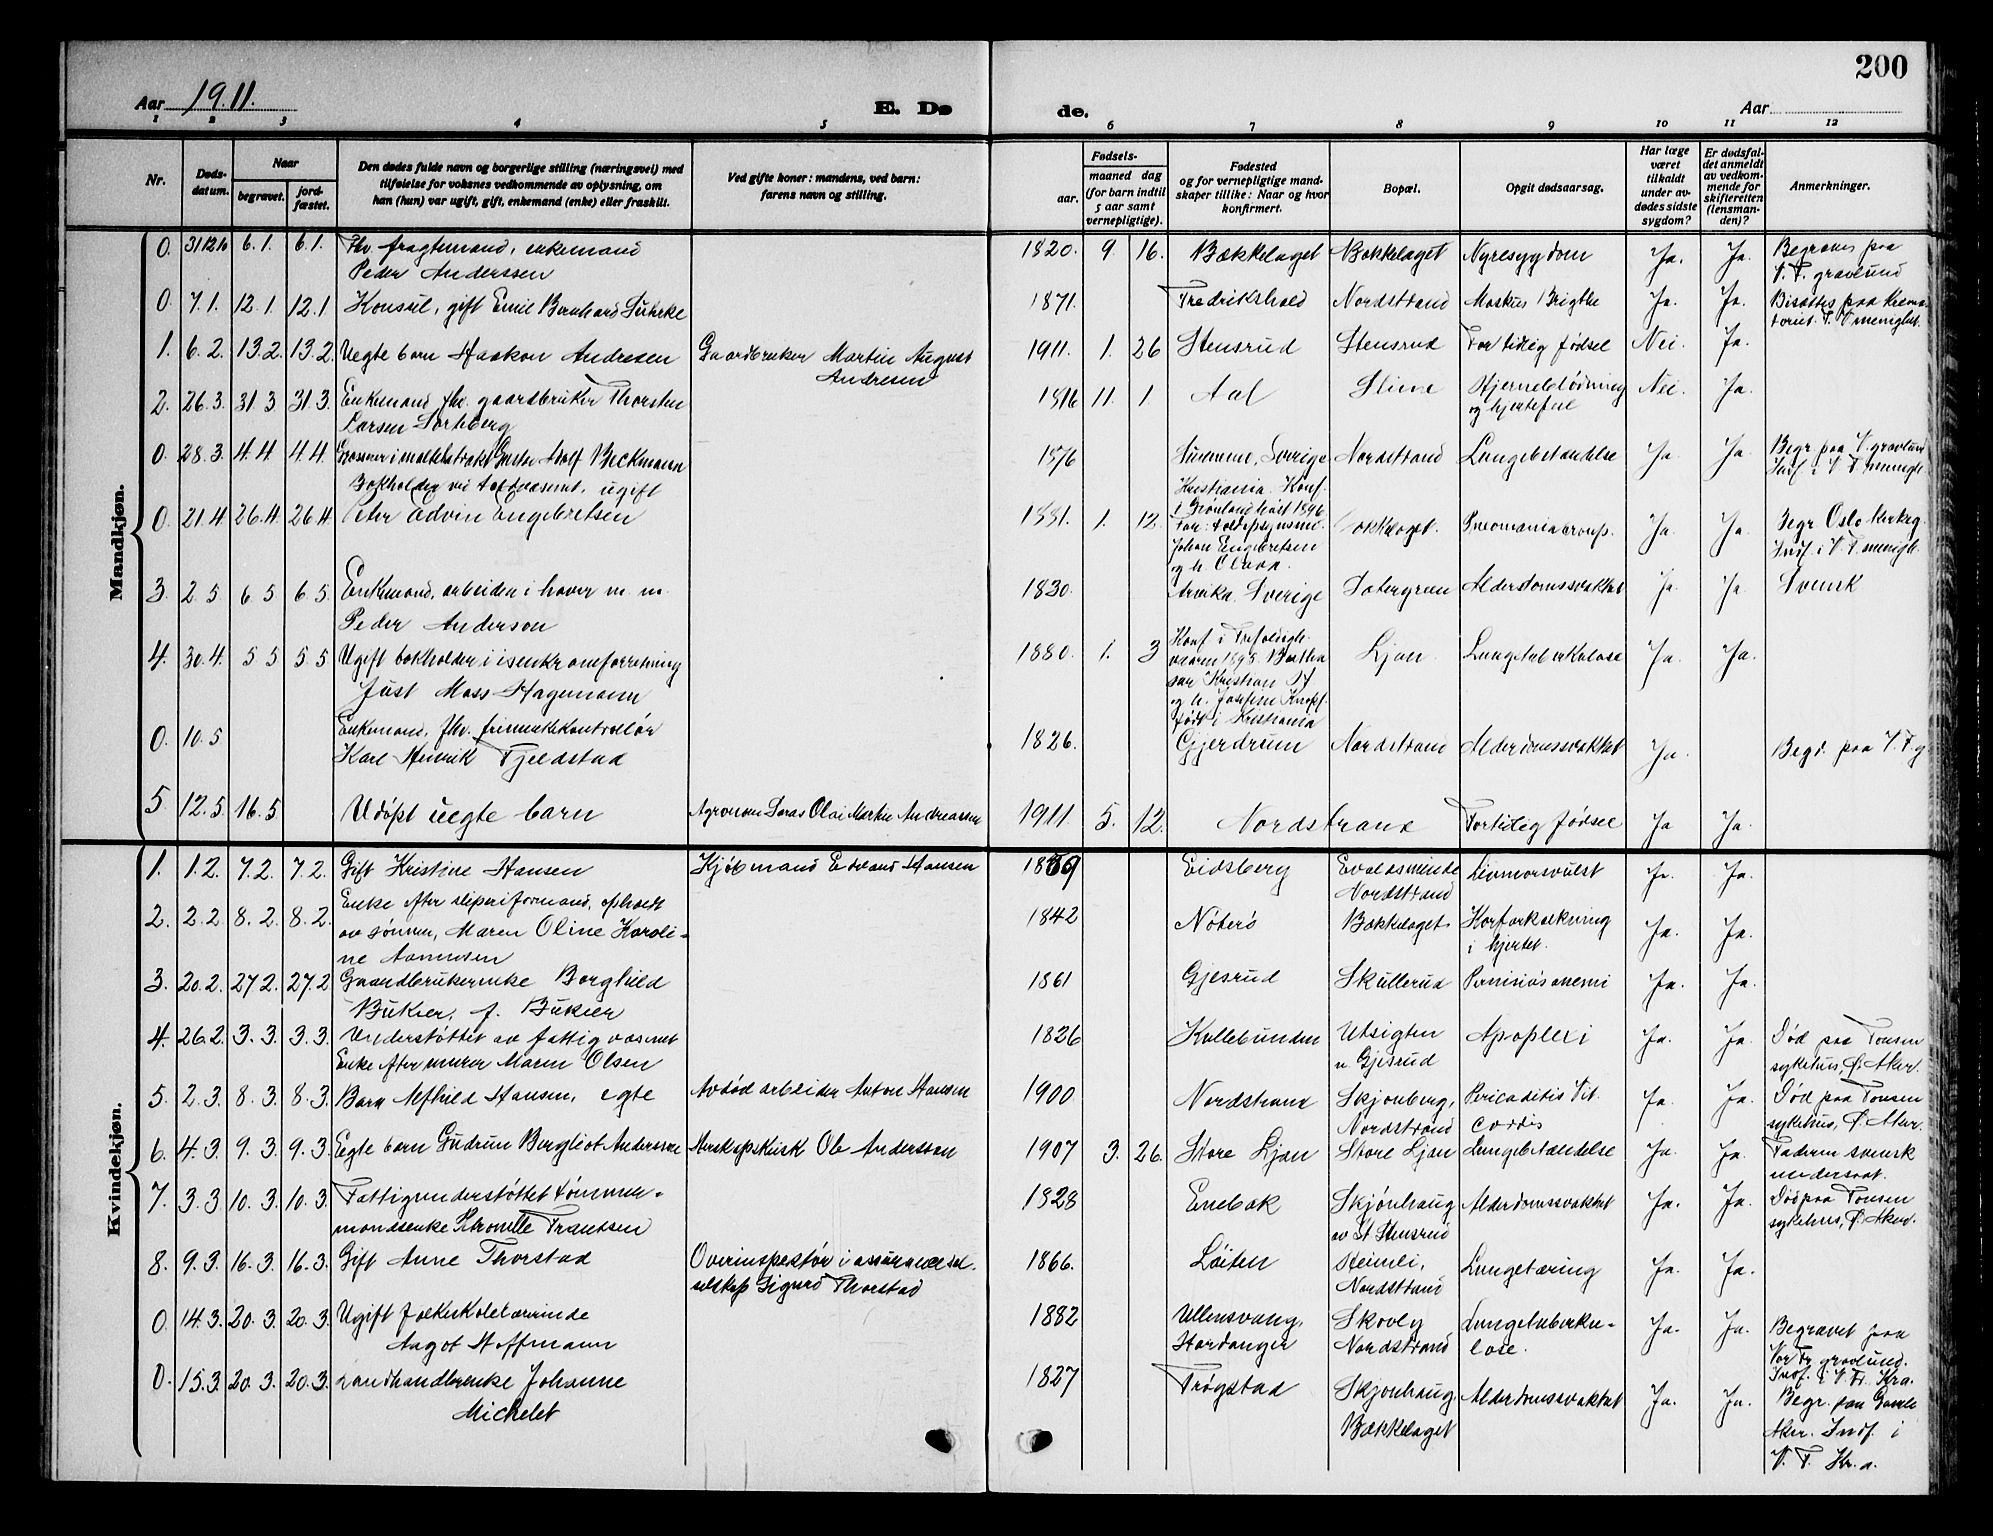 200
Aar 1911.
E. Dø de.
Aar
1 2 3 4 5 6 7 8 9 10 11 12
Nr.
Døds-datum.
Naar
begravet.
jord-fæstet.
Den dødes fulde navn og borgerlige stilling (næringsvei) med
tilføielse for voksnes vedkommende av oplysning, om
han (hun) var ugift, gift, enkemand (enke) eller fraskilt.
Ved gifte koner: mandens, ved barn:
farens navn og stilling.
Fødsels-
aar.
maaned dag
(for barn indtil
5 aar samt
vernepligtige).
Fødested
og for vernepligtige mand-
skaper tillike: Naar og hvor
konfirmert.
Bopæl.
Opgit dødsaarsag.
Har læge
været
tilkaldt
under av-
dødes sidste
sygdom?
Er dødsfal-
det anmeldt
av vedkom-
mende for
skifteretten
(lensman-
den)?
Anmerkninger.
Mandkjøn.
0. 31 12 10 6.1. 6.1. Fhv. fragtemand, enkemand 1820. 9. 16. Bækkelaget Bækkelaget Nyresygdom Ja. Ja. Begraves paa
Peder Anderssen V. F. gravlund
0. 7.1. 12.1 12.1 Konsul, gift Emil Bernhard 1871. Fredrikshald Nordstrand Ja. Ja.
1. 6.2. 13.2. 13.2. Uegte barn Haakon Andresen Gaardbruker Martin August 1911. 1. 26 Stensrud Stensrud For tidlig fødsel Nei. Ja.
Andresen
2. 26.3. 31.3 31.3. Enkemand fhv. gaardbruker Thorsten 1816 11. 1. Aal Hjerneblødning Nei. Ja.
Larsen og hjertefeil
0. 28.3. 4.4 4.4. Adolf Beckmann 1876 Sverige Nordstrand Lungebetændelse Ja. Ja. Begr paa V. gravlund
Bokholder ved ugift
0. 21.4. 26.4. 26.4 Peter Edvin Engebretsen 1881. 1. 12 Kristiania. Konf.
Johan Engebretsen Ja. Ja. Begr Oslo
3. 2 5. 6 5 6 5. Enkemand, arbeider i haver m. m. 1830. Arvika, Sverige Sætergren Alderdomssvakhet Ja. Ja Svensk
Peder Anderson
4. 30.4. 5 5 5 5 Ugift bokholder i isenkramforretning 1880. 1. 3 Ljan Lungetuberkulose Ja. Ja.
Just Moss Hagemann født i Kristiania
0. 10.5 Enkemand, fhv. frimerkekontrollør
Karl Henrik Fjeldstad 1826. Gjerdrum Nordstrand Alderdomssvakhet Ja. Begr. paa V. F. g
5 12.5. 16.5 Udøpt uegte barn Agronom Olai Martin Andreassen 1911 5. 12. Nordstrand For tidlig fødsel Ja Ja.
Kvindekjøn.
1. 1.2. 7.2. 7.2. Gift Kristine Hansen Kjøbmand Edvard Hansen Eidsberg Nordstrand Livmorsvulst Ja. Ja.
2. 2.2 8.2. 8.2. Enke efter sliperiformand, opholdt 1842 Nøterø Bækkelaget Karforkalkning Ja. Ja.
av sønnen, Maren Oline Karoli- i hjertet.
ne
3. 20.2. 27.2. 27.2 Gaardbrukerenke Borghild 1861 Gjesrud Skullerud Perniciøs anemi Ja. Ja.
Bukier, f. Bukier
4. 26.2. 3.3. 3.3 Understøttet av fattigvæsenet 1826 Kullebunden Utsigten Apoplexi Ja. Ja. Død paa Tonsen
Enke efter murer Maren Olsen Gjesrud sykehus, Ø. Aker.
5. 2.3. 8.3. 8.3. Barn Alfhild Hansen, egte Avdød arbeider Anton Hansen 1900 Nordstrand Skjønberg, Ja. Ja. Død paa Tonsen
Nordstrand cordis sykehus, Ø. Aker.
6. 4.3. 9.3. 9.3. Egte barn Gudrun Bergliot Anderson Ole Andersson 1907 3. 26. Store Ljan Store Ljan Lungebetændelse Ja. Ja. Faderen svensk
undersaat.
7. 3.3 10.3. 10.3. Fattigunderstøttet tømmer- 1828 Enebak Skjønhaug Alderdomssvakhet Ja. Ja. Død paa Tonsen
mandsenke Petronille Frantsen av St Stensrud sykehus, Ø. Aker.
8. 9.3. 16.3. 16.3. Gift Anne Thorstad Overinspektør i assurancesel- 1866. Løiten Heimli, Lungetæring Ja. Ja.
selskap Sigurd Thorstad Nordstrand
0. 14.3. 20.3. 20.3. Ugift folkeskolelærerinde 1882 Ullensvang, Skovly Lungetuberku- Ja. Ja. Begravet paa
Aagot Hoffmann Hardanger Nordstrand lose. Vor Fr gravlund.
Indf. i V. Fr. Kra.
0. 15.3. 20.3. 20.3. Landhandlerenke Johanne 1827 Trøgstad Skjønhaug Alderdomssvakhet Ja. Ja. Begr. paa Gamle
Michelet Bækkelaget Aker. Indf. i
V. F. Kr.a.